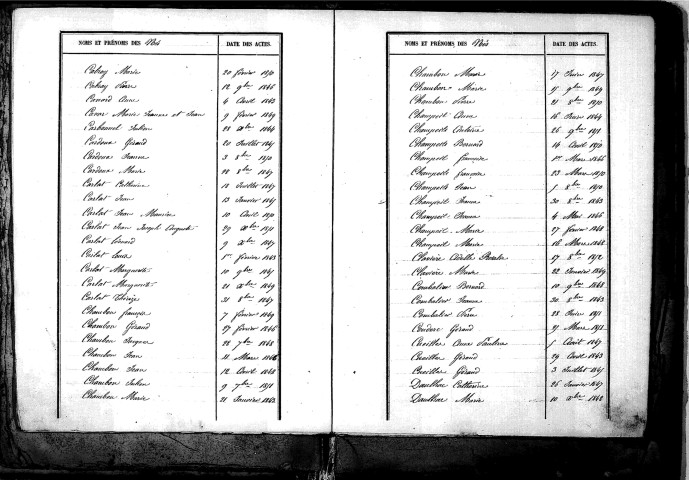 NOMS ET PRÉNOMS DES Nés DATE DES ACTES.
Calvay Marie 20 février 1870
Calvay Pierre 12 9bre 1866
Canard Anne 4 Avril 1863
Marie Jeanne et Jean 9 février 1869
Carbonnel Julien 28 Xbre 1864
Cardoux Gérard 20 Juillet
Cardoux Jeanne 3 8bre 1870
Cardoux Marie 28 8bre 1867
Carlat Catherine 18 Juillet 1869
Carlat Jean 13 Janvier
Carlat Jean Maurice 10 Avril 1870
Carlat Jean Joseph Auguste 29 Xbre 1871
Carlat Léonard 9 Xbre 1867
Carlat Louis 1er février 1863
Carlat Marguerite 10 9bre 1861
Carlat Marguerite 21 Xbre 1869
Carlat Thérèse 31 8bre 1867
Chambon françois 7 février 1869
Chambon Gérard 27 février 1866
Chambon Jacques 28 7bre 1868
Chambon Jean 11 Mars 1866
Chambon Jean 12 Avril 1868
Chambon Julien 9 7bre 1871
Chambon Marie 21 Janvier 1863
NOMS ET PRÉNOMS DES Nés DATE DES ACTES.
Chambon Marie 17 1867
Chambon Marie 15 9bre 1869
Chambon Pierre 21 8bre 1870
Champeil Anne 16 1864
Champeil Antoine 26 9bre 1871
Champeil Bernard 14 Avril 1870
Champeil françoise 1er Mars 1866
Champeil françoise 23 Mars 1870
Champeil Jean 5 8bre 1870
Champeil Jeanne 30 8bre 1863
Champeil Jeanne 4 Mai 1866
Champeil Marie 27 février 1868
Champeil Marie 16 Mars 1868
Clavière Rosalie 17 8bre 1872
Clavière Marie 22 Janvier 1869
Combatier Bernard 10 9bre 1868
Combatier Jeanne 30 8bre 1863
Combatier Pierre 28 1871
Couderc Gérard 21 Mars 1871
Cueille Anne Pauline 5 Août 1867
Cueille Gérard 29 Avril 1863
Cueille Gérard 3 Juillet 1865
Daulhac Catherine 26 Janvier 1867
Daulhac Marie 10 Xbre 1868